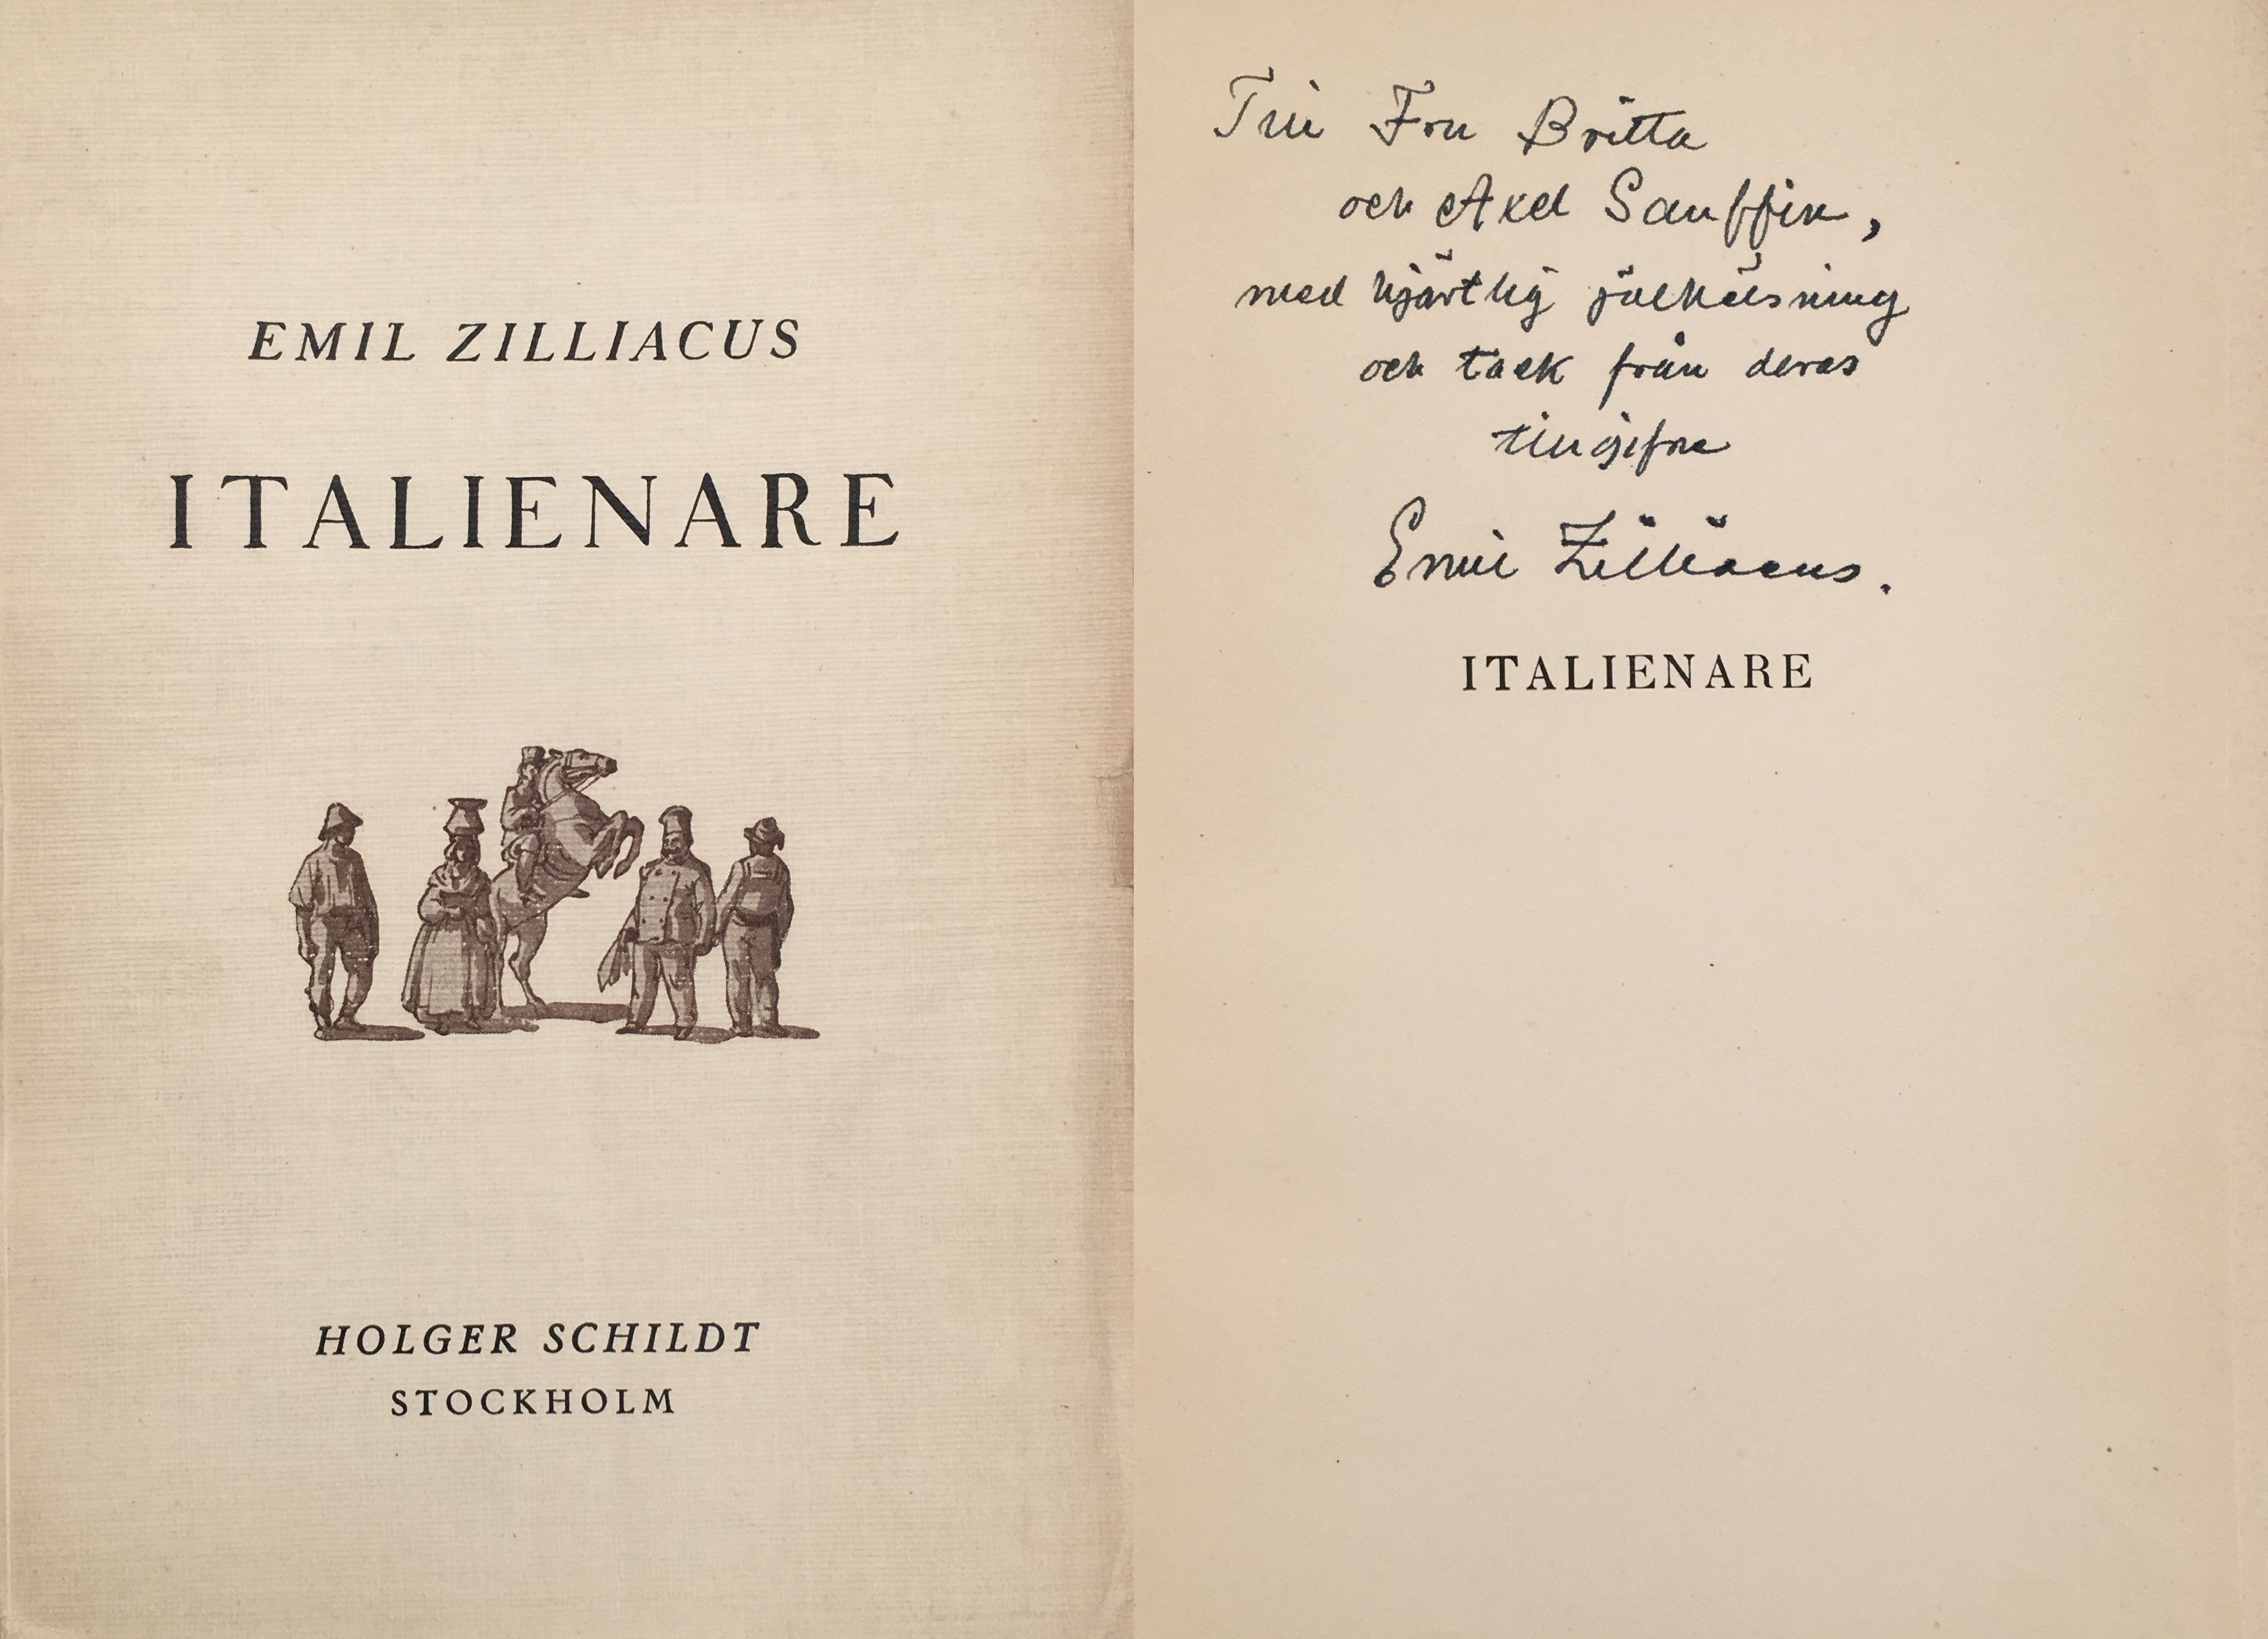 EMIL ZILLIACUS
ITALIENARE
HOLGER SCHILDT
STOCKHOLM
Till Fru Britta
och Axel Gauffin,
med hjärtlig julhälsning
och tack från deras
tillgifne
Emil Zilliacus.
ITALIENARE